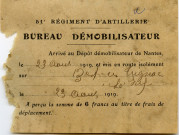 61e RÉGIMENT D'ARTILLERIE
BUREAU DÉMOBILISATEUR
Arrivé au Dépôt démobilisateur de Nantes,
le 23 Aout 1919, et mis en route isolément
sur
le 23 Aout 1919.
A perçu la somme de 6 francs au titre de frais de
déplacement.